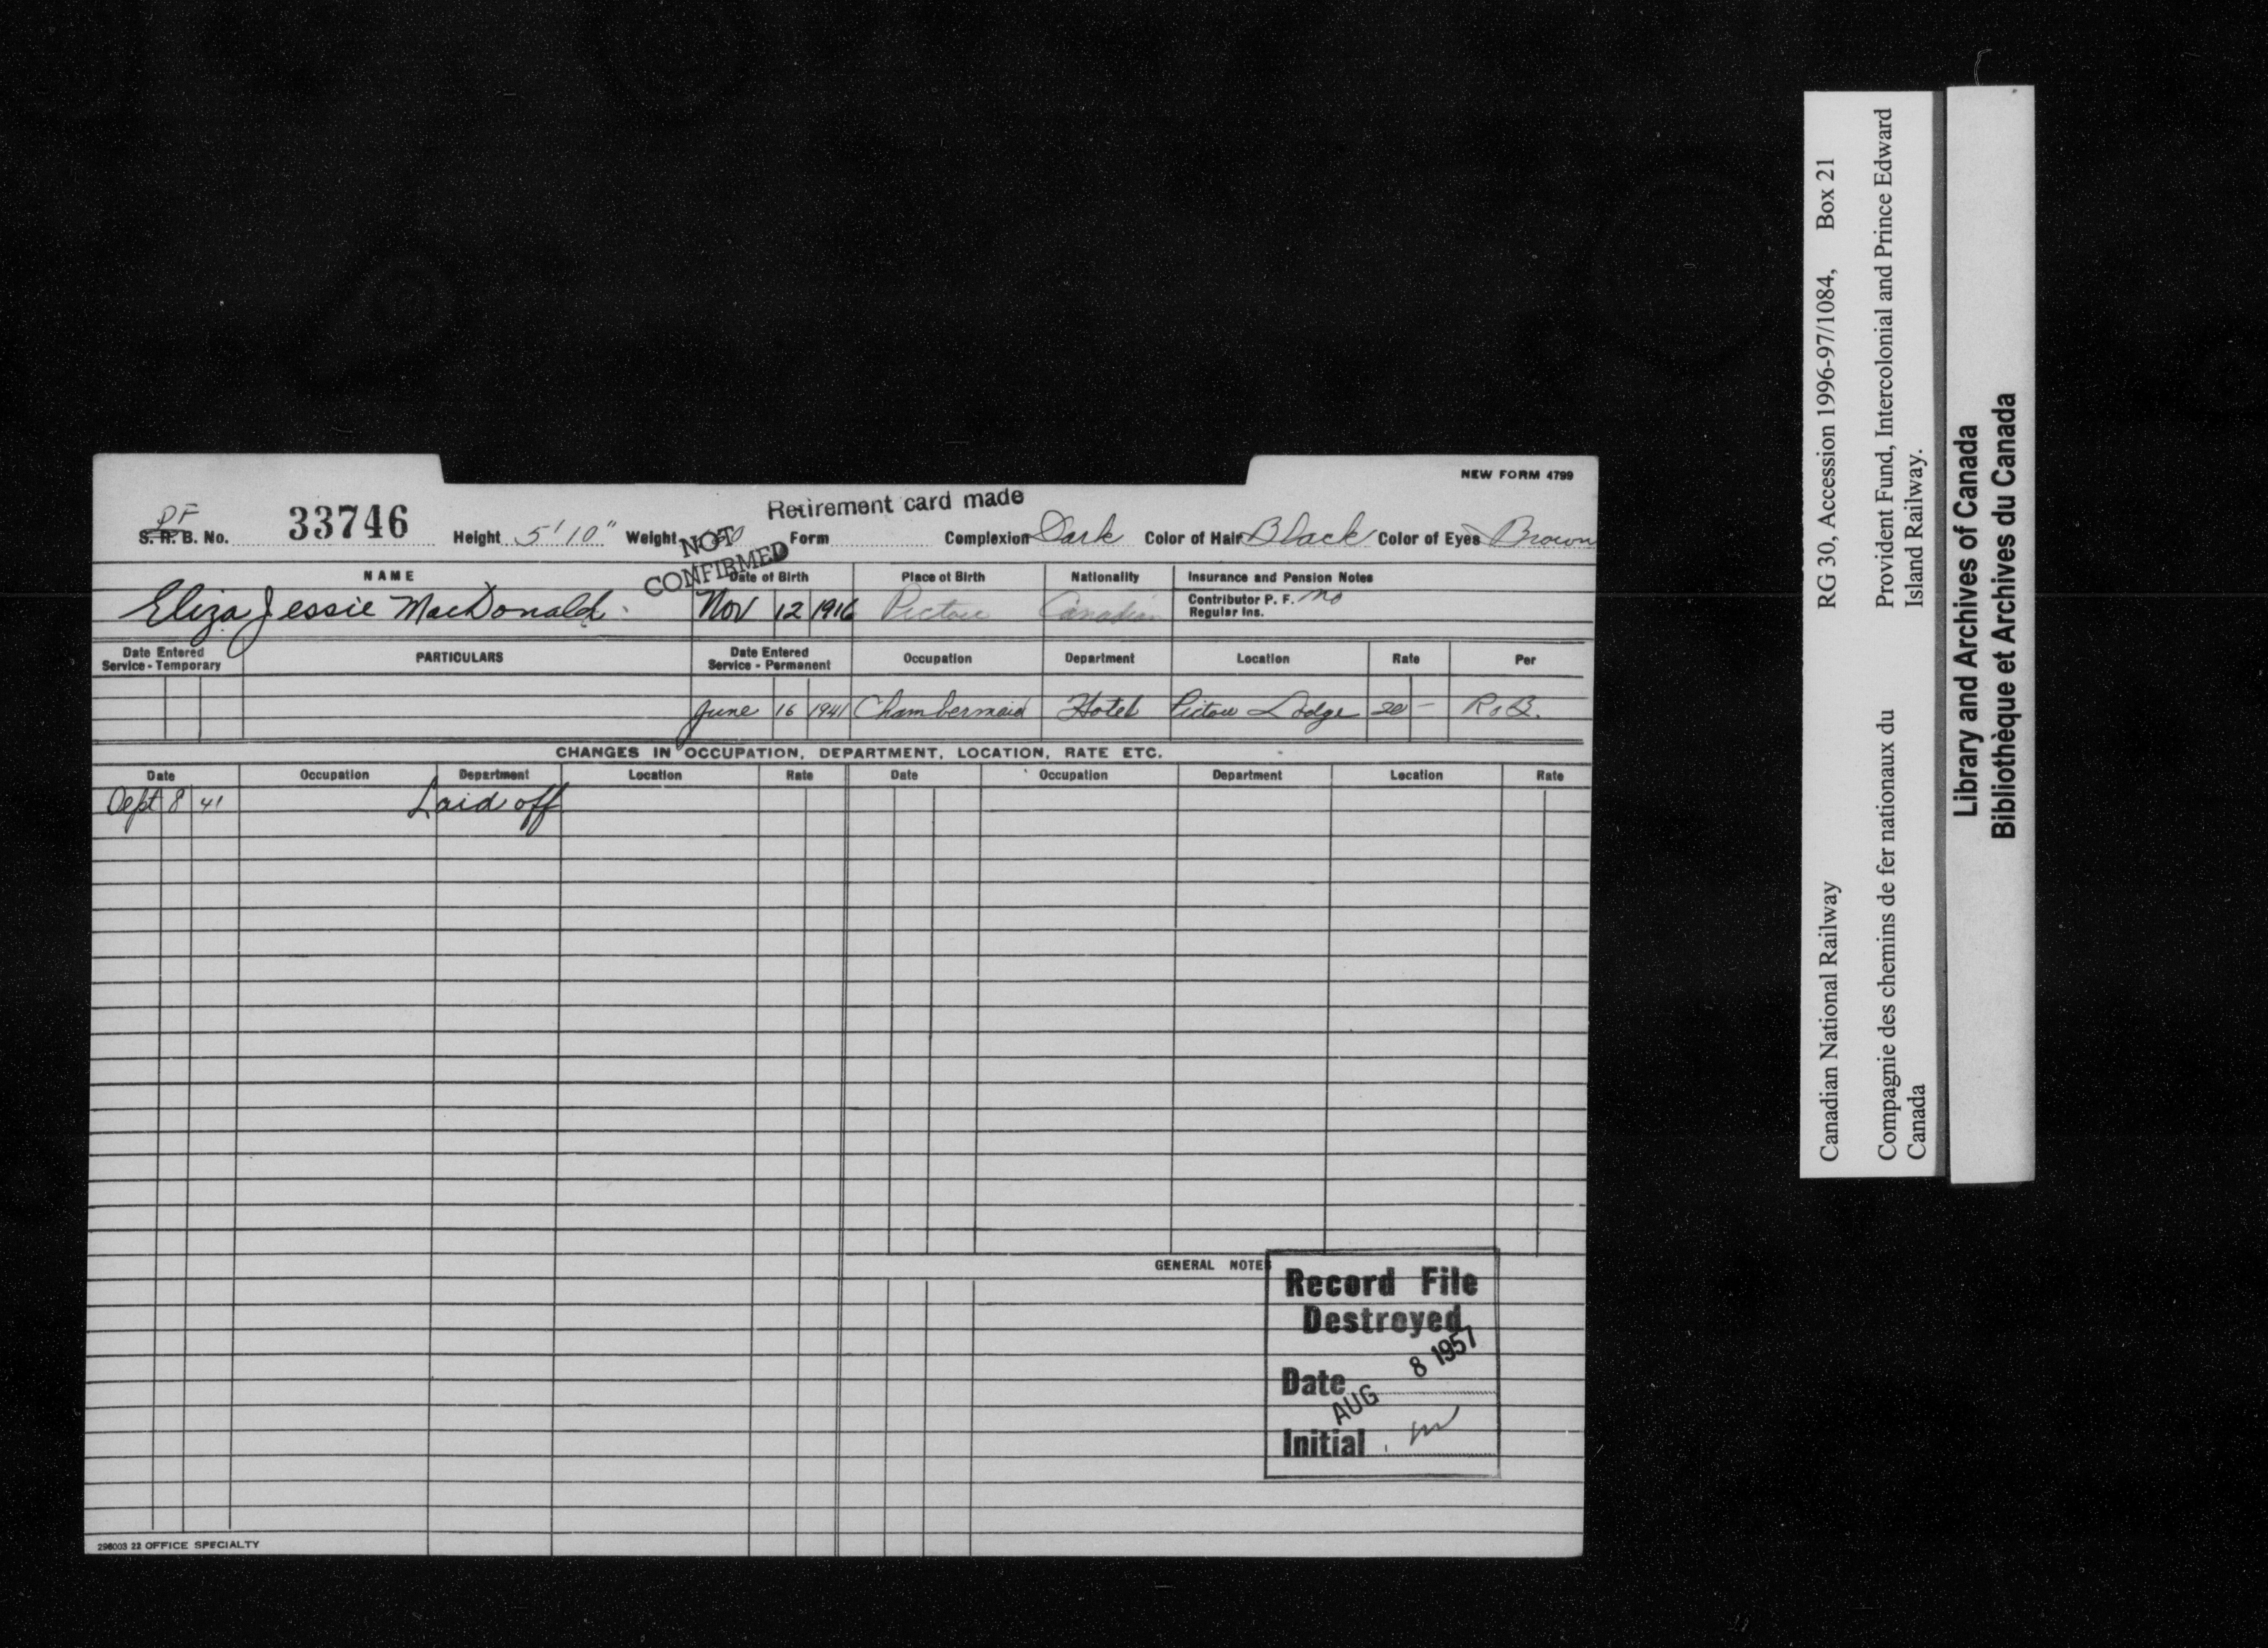 NEW FORM 4799
Retirement card made
PF
S. R. B. No. 33746 Height 5' 10" Weight Form Complexion Dark Color of Hair Black Color of Eyes Brown
NOT CONFIRMED
NAME Date of Birth Place of Birth Nationality Insurance and Pension Notes
Eliza Jessie MacDonald Nov 12 1916 Pictou Canadian Contributor P. F. no
Regular Ins.
Date Entered Service - Temporary PARTICULARS Date Entered Service - Permanent Occupation Department Location Rate Per
June 16 1941 Chambermaid Hotel Pictou Lodge 20 -
CHANGES IN OCCUPATION, DEPARTMENT, LOCATION, RATE ETC.
Date Occupation Department Location Rate Date Occupation Department Location Rate
Sept 8 41 Laid off
GENERAL NOTES
Record File
Destroyed
Date AUG 8 1957
Initial
296003 22 OFFICE SPECIALTY
Canadian National Railway RG 30, Accession 1996-97/1084, Box 21
Compagnie des chemins de fer nationaux du Provident Fund, Intercolonial and Prince Edward
Canada Island Railway.
Library and Archives of Canada
Bibliothèque et Archives du Canada